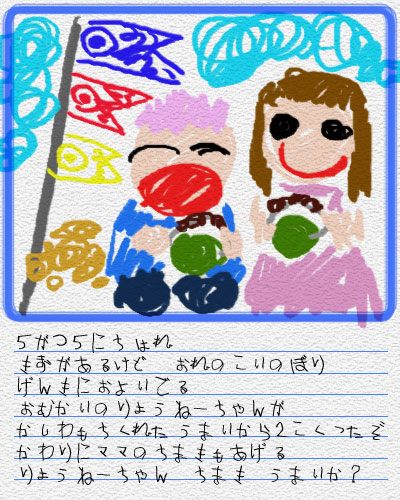 5がつ5にち はれ
きずがあるけど おれの こいのぼり
げんきにおよいでる
おむかいのりょうねーちゃんが
かしわもちくれた うまいから2こくったぞ
かわりにママのちまきもあげる
りょうねーちゃん ちまき うまいか?